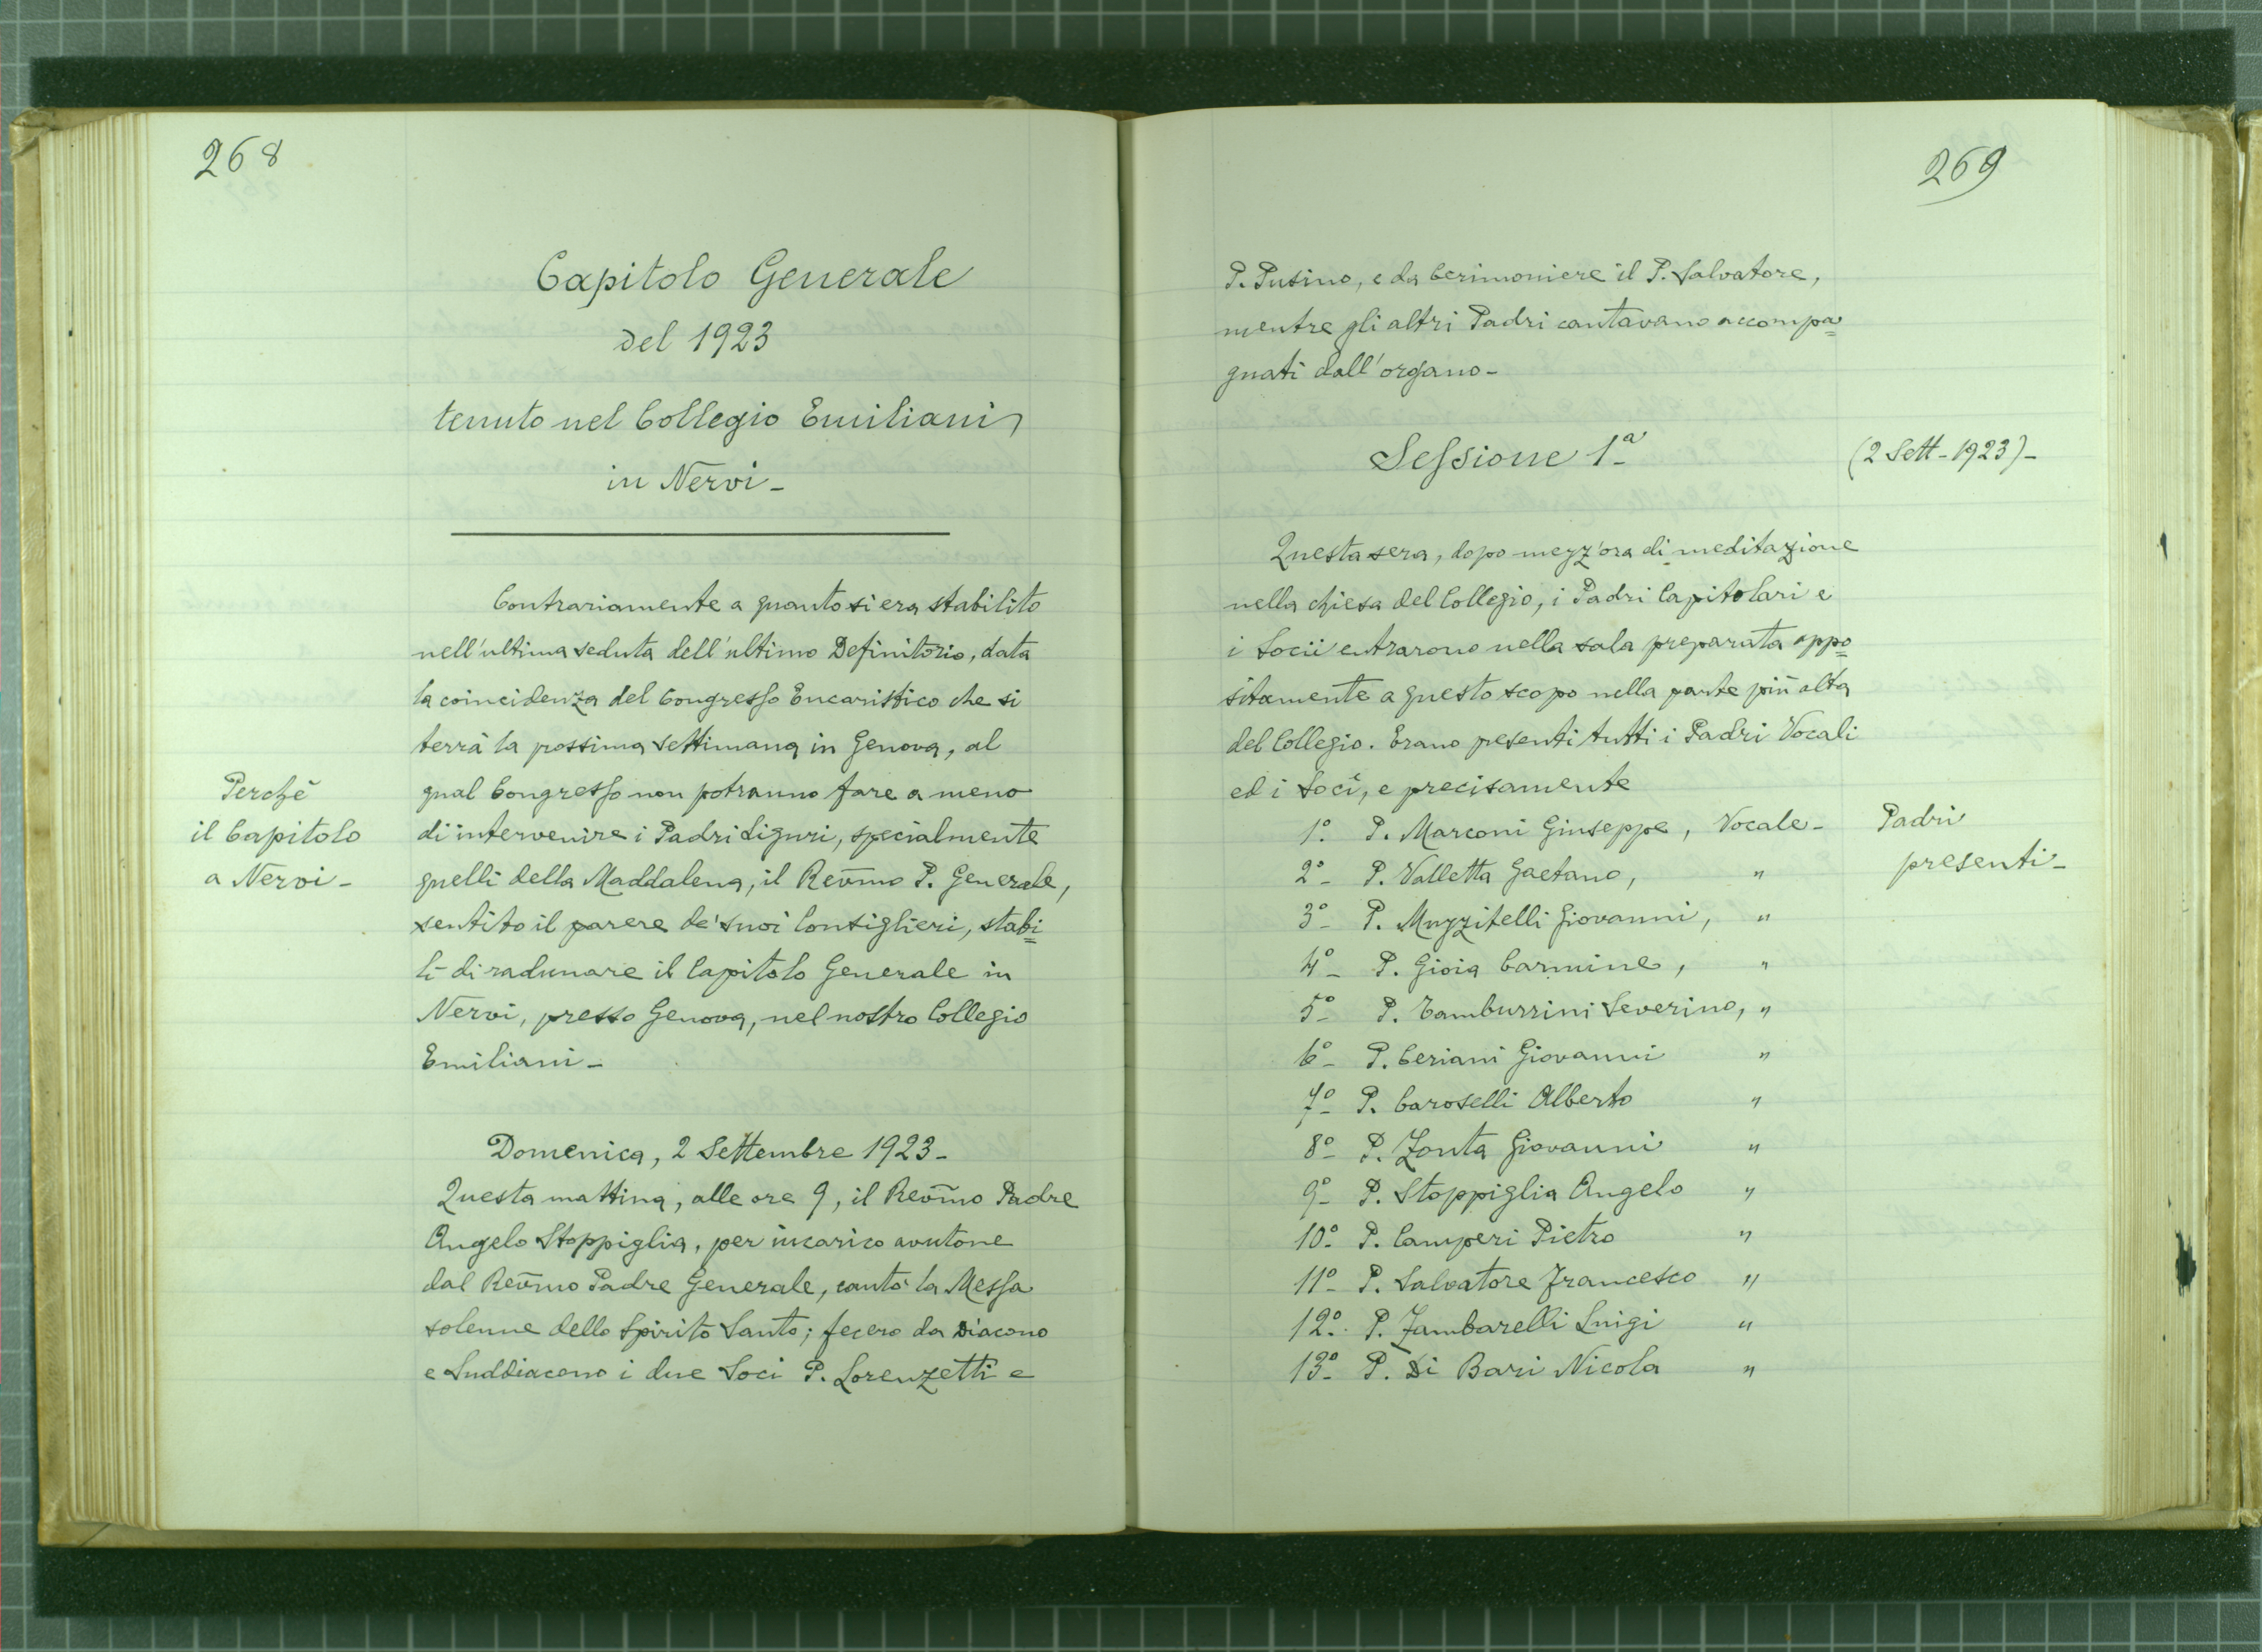 268
Capitolo Generale
del 1923
tenuto nel Collegio Emiliani
in Nervi -
Contrariamente a quanto si era stabilito
nell'ultima seduta dell'ultimo Definitorio, data
la coincidenza del Congresso Eucaristico che si
terrà la possima settimana in Genova, al
qual Congresso non potranno fare a meno
di intervenire i Padri Liguri, specialmente
quelli della Maddalena, il Rev̄mo P. Generale,
sentito il parere de' suoi Consiglieri, stabi=
lì di radunare il Capitolo Generale in
Nervi, presso Genova, nel nostro Collegio
Emiliani -
Perchè
il Capitolo
a Nervi -
Domenica, 2 Settembre 1923 -
Questa mattina, alle ore 9, il Rev̄mo Padre
Angelo Stoppiglia, per incarico avutone
dal Rev̄mo Padre Generale, cantò la Messa
solenne dello Spirito Santo; fecero da Diacono
e Suddiacono i due Soci P. Lorenzetti e
269
P. Pusino, e da Cerimoniere il P. Salvatore,
mentre gli altri Padri cantavano accompa=
gnati dall'organo -
Sessione 1ª
(2 Sett - 1923) -
Questa sera, dopo mezz'ora di meditazione
nella chiesa del Collegio, i Padri Capitolari e
i Socii entrarono nella sala preparata appo=
sitamente a questo scopo nella parte più alta
del Collegio. Erano presenti tutti i Padri Vocali
ed i Soci, e precisamente
Padri
presenti -
1º. P. Marconi Giuseppe, Vocale -
2º - P. Valletta Gaetano, "
3º - P. Muzzitelli Giovanni, "
4º - P. Gioia Carmine, "
5º - P. Tamburrini Severino, "
6º - P. Ceriani Giovanni "
7º - P. Caroselli Alberto "
8º - P. Zonta Giovanni "
9º - P. Stoppiglia Angelo "
10º - P. Camperi Pietro "
11º - P. Salvatore Francesco "
12º. P. Zambarelli Luigi "
13º - P. Di Bari Nicola "